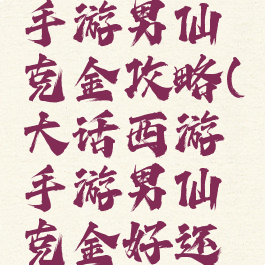 手游男仙
克金攻略(
大话西游
手游男仙
克金好还